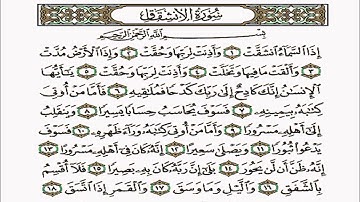 سُورَةُ الانشِقَاقِ
بِسْمِ اللَّهِ الرَّحْمَٰنِ الرَّحِيمِ
إِذَا السَّمَاءُ انشَقَّتْ ١ وَأَذِنَتْ لِرَبِّهَا وَحُقَّتْ ٢ وَإِذَا الْأَرْضُ مُدَّتْ
٣ وَأَلْقَتْ مَا فِيهَا وَتَخَلَّتْ ٤ وَأَذِنَتْ لِرَبِّهَا وَحُقَّتْ ٥ يَا أَيُّهَا
الْإِنسَانُ إِنَّكَ كَادِحٌ إِلَىٰ رَبِّكَ كَدْحًا فَمُلَاقِيهِ ٦ فَأَمَّا مَنْ أُوتِيَ
كِتَابَهُ بِيَمِينِهِ ٧ فَسَوْفَ يُحَاسَبُ حِسَابًا يَسِيرًا ٨ وَيَنقَلِبُ
إِلَىٰ أَهْلِهِ مَسْرُورًا ٩ وَأَمَّا مَنْ أُوتِيَ كِتَابَهُ وَرَاءَ ظَهْرِهِ ١٠ فَسَوْفَ
يَدْعُو ثُبُورًا ١١ وَيَصْلَىٰ سَعِيرًا ١٢ إِنَّهُ كَانَ فِي أَهْلِهِ مَسْرُورًا ١٣
إِنَّهُ ظَنَّ أَن لَّن يَحُورَ ١٤ بَلَىٰ إِنَّ رَبَّهُ كَانَ بِهِ بَصِيرًا ١٥ فَلَا أُقْسِمُ
بِالشَّفَقِ ١٦ وَاللَّيْلِ وَمَا وَسَقَ ١٧ وَالْقَمَرِ إِذَا اتَّسَقَ ١٨